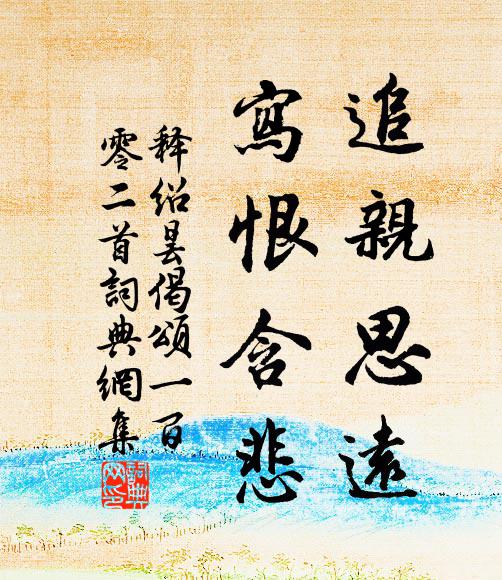 追親思遠
寫恨含悲
释紹昙偈頌一百
零二首詞典網集